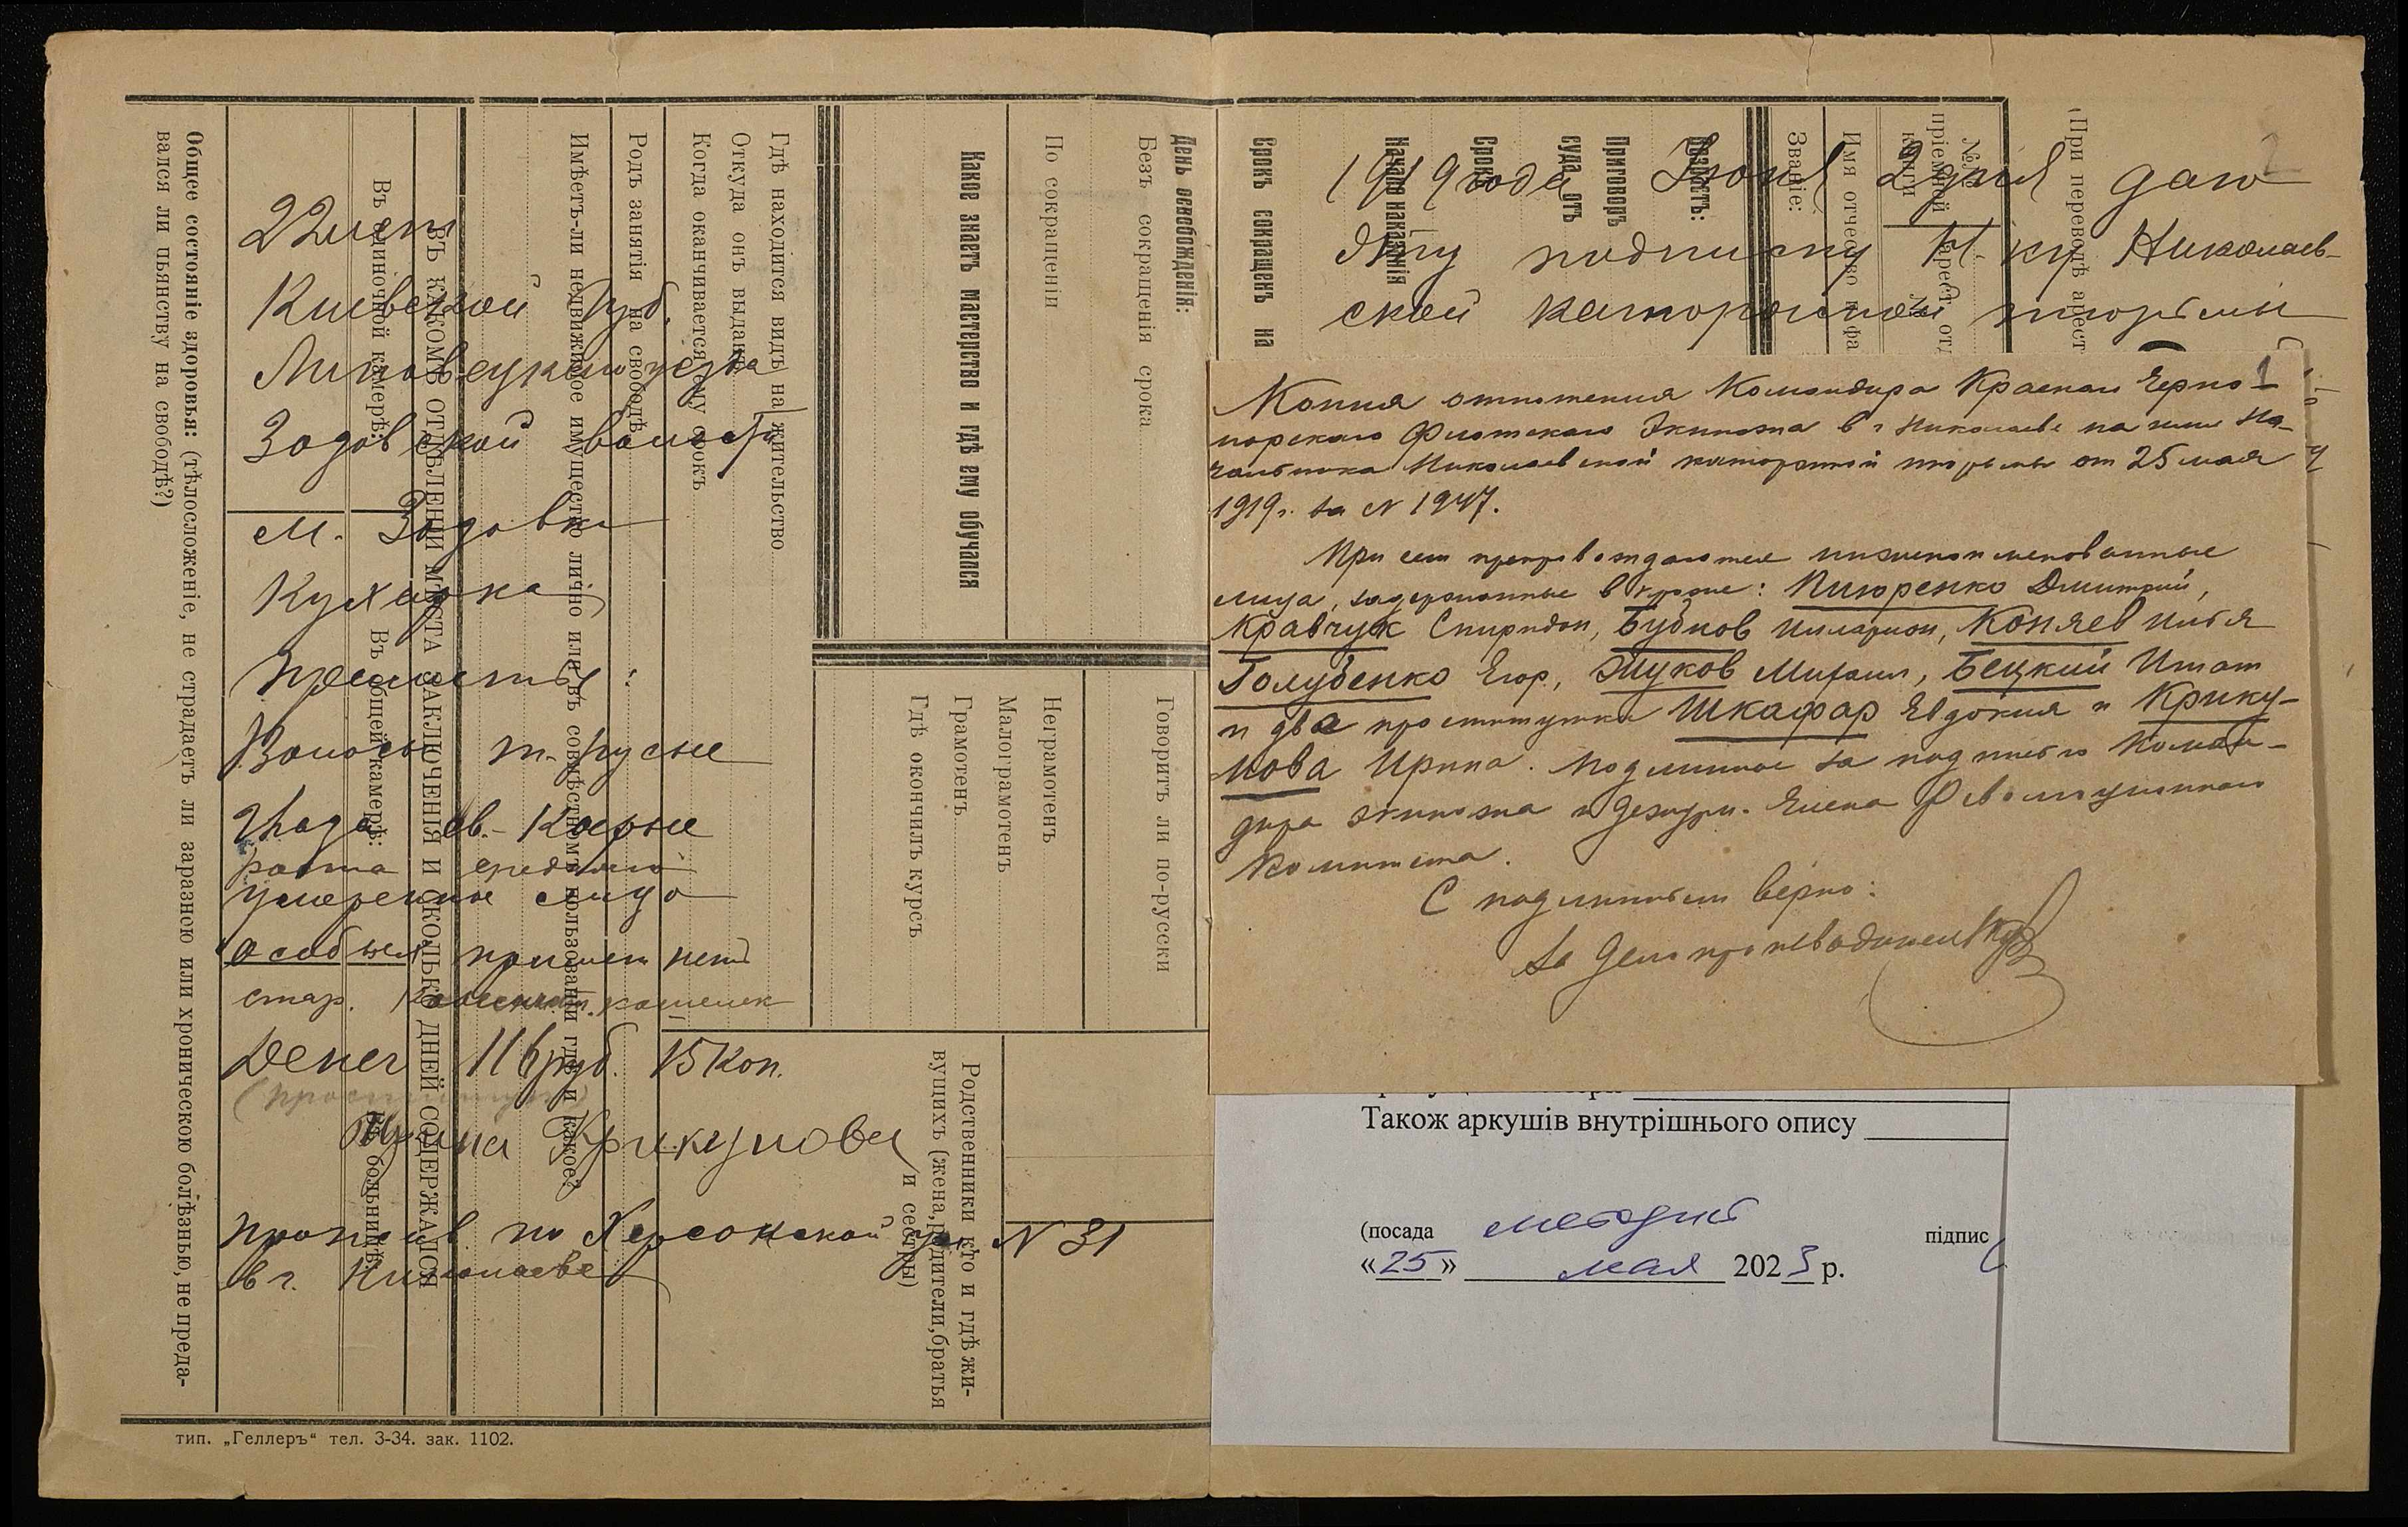 22 лет
Киевской губ.
Липовецкого уезда
Зодовской волости
м. Зодовка
Кухарка
Приметы:
Волосы т.-русые
Глаза св.-Карые
роста средняго
умеренное лицо
особых примет нет
стар. кошелек
Денег 116 руб. 15 коп.
(проститутка)
Ирина Крикунова
прожив. по Херсонской ул. N 31
в г. Николаеве
Общее состояніе здоровья: (тѣлосложеніе, не страдаетъ ли заразною или хроническою болѣзнью, не преда-
вался ли пьянству на свободѣ?)
ВЪ КАКОМЪ ОТДѢЛЕНІИ МѢСТА ЗАКЛЮЧЕНІЯ И СКОЛЬКО ДНЕЙ СОДЕРЖАЛСЯ
Въ одиночной камерѣ:
Въ общей камерѣ:
Въ больницѣ:
Имѣетъ-ли недвижимое имущество лично или въ совмѣстномъ пользованіи гдѣ и какое?
Родъ занятія на свободѣ
Когда оканчивается ему срокъ
Откуда онъ выданъ
Гдѣ находится видъ на жительство
Какое знаетъ мастерство и гдѣ ему обучался
По сокращеніи
Безъ сокращенія срока
День освобожденія:
Говоритъ ли по-русски
Неграмотенъ
Малограмотенъ
Грамотенъ
Гдѣ окончилъ курсъ
Родственники кто и гдѣ жи-
вущихъ (жена, родители, братья
и сестры)
тип. „Геллеръ“ тел. 3-34. зак. 1102.
2
1919 года Июня 2 дня даю
эту подписку Н-ку Николаев-
ской каторжной тюрьмы
Срокъ сокращенъ на
Начало наказанія
Срокъ
Приговоръ
суда отъ
Возрастъ:
Званіе:
Имя отчество и фа
№ пріемной книги
арест. отд
(При переводѣ арест
1
Копия отношения Командира Красного Черно-
морского Флотского Экипажа в г. Николаеве на имя На-
чальника Николаевской каторжной тюрьмы от 25 мая
1919 г. за N 1947.
При сем препровождаются нижепоименованные
лица, задержанные в краже: Пиюренко Дмитрий,
Кравчук Спиридон, Бубнов Илларион, Коняев Илья
Голубенко Егор, Жуков Михаил, Бецкий Игнат
и два проститутки Шкафар Евдокия и Крику-
нова Ирина. Подлинное за подписью Коман-
дира экипажа и дежурн. Члена Революционного
Комитета.
С подлинным верно:
За Делопроизводителя
Також аркушів внутрішнього опису
(посада методист підпис
«25» мая 2023 р.